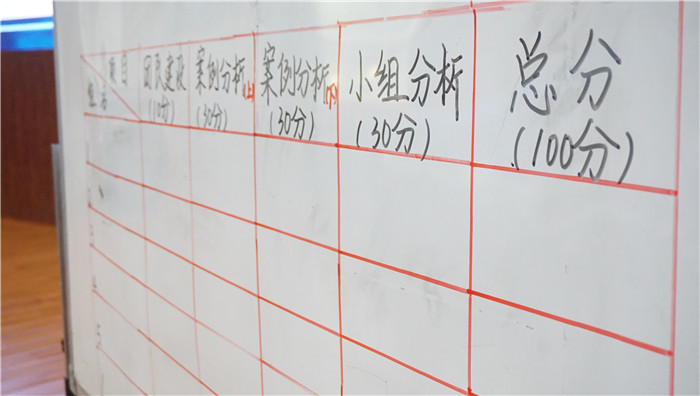 项目
组名
团队建设
(10分)
案例分析(上)
(30分)
案例分析(下)
(30分)
小组分析
(30分)
总分
(100分)